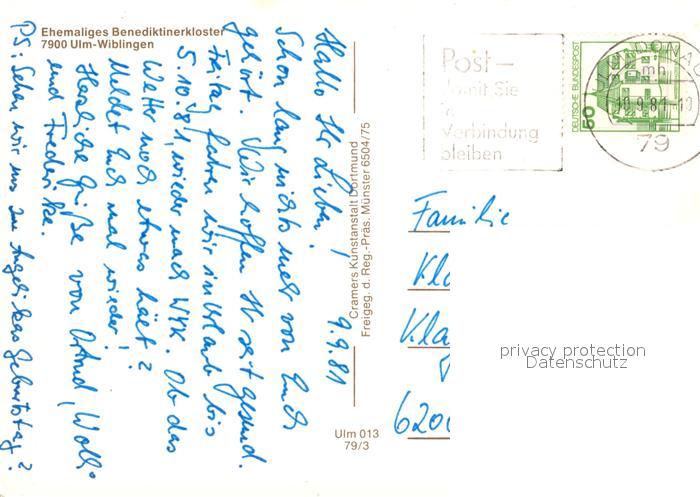 Ehemaliges Benediktinerkloster
7900 Ulm-Wiblingen
9.9.81
Hallo Ihr Lieben!
Schon lang nichts mehr von Euch
gehört. Wir hoffen Ihr seit gesund.
Freitag fahren wir in Urlaub bis
5.10.81, wieder nach WYK. Ob das
Wetter noch etwas hält?
Meldet Euch mal wieder!
Herzliche Grüße von Astrid, Wolf-
und Frederike.
PS: Sehen wir uns zu Angelikas Geburtstag?
Cramers Kunstanstalt Dortmund
Freigeg. d. Reg.-Präs. Münster 6504/75
Ulm 013
79/3
Post–
damit Sie
in
Verbindung
bleiben
DEUTSCHE BUNDESPOST
60
ULM, DONAU
mh
10.9.81-10
79
Familie
Kla
Kla
620
privacy protection
Datenschutz